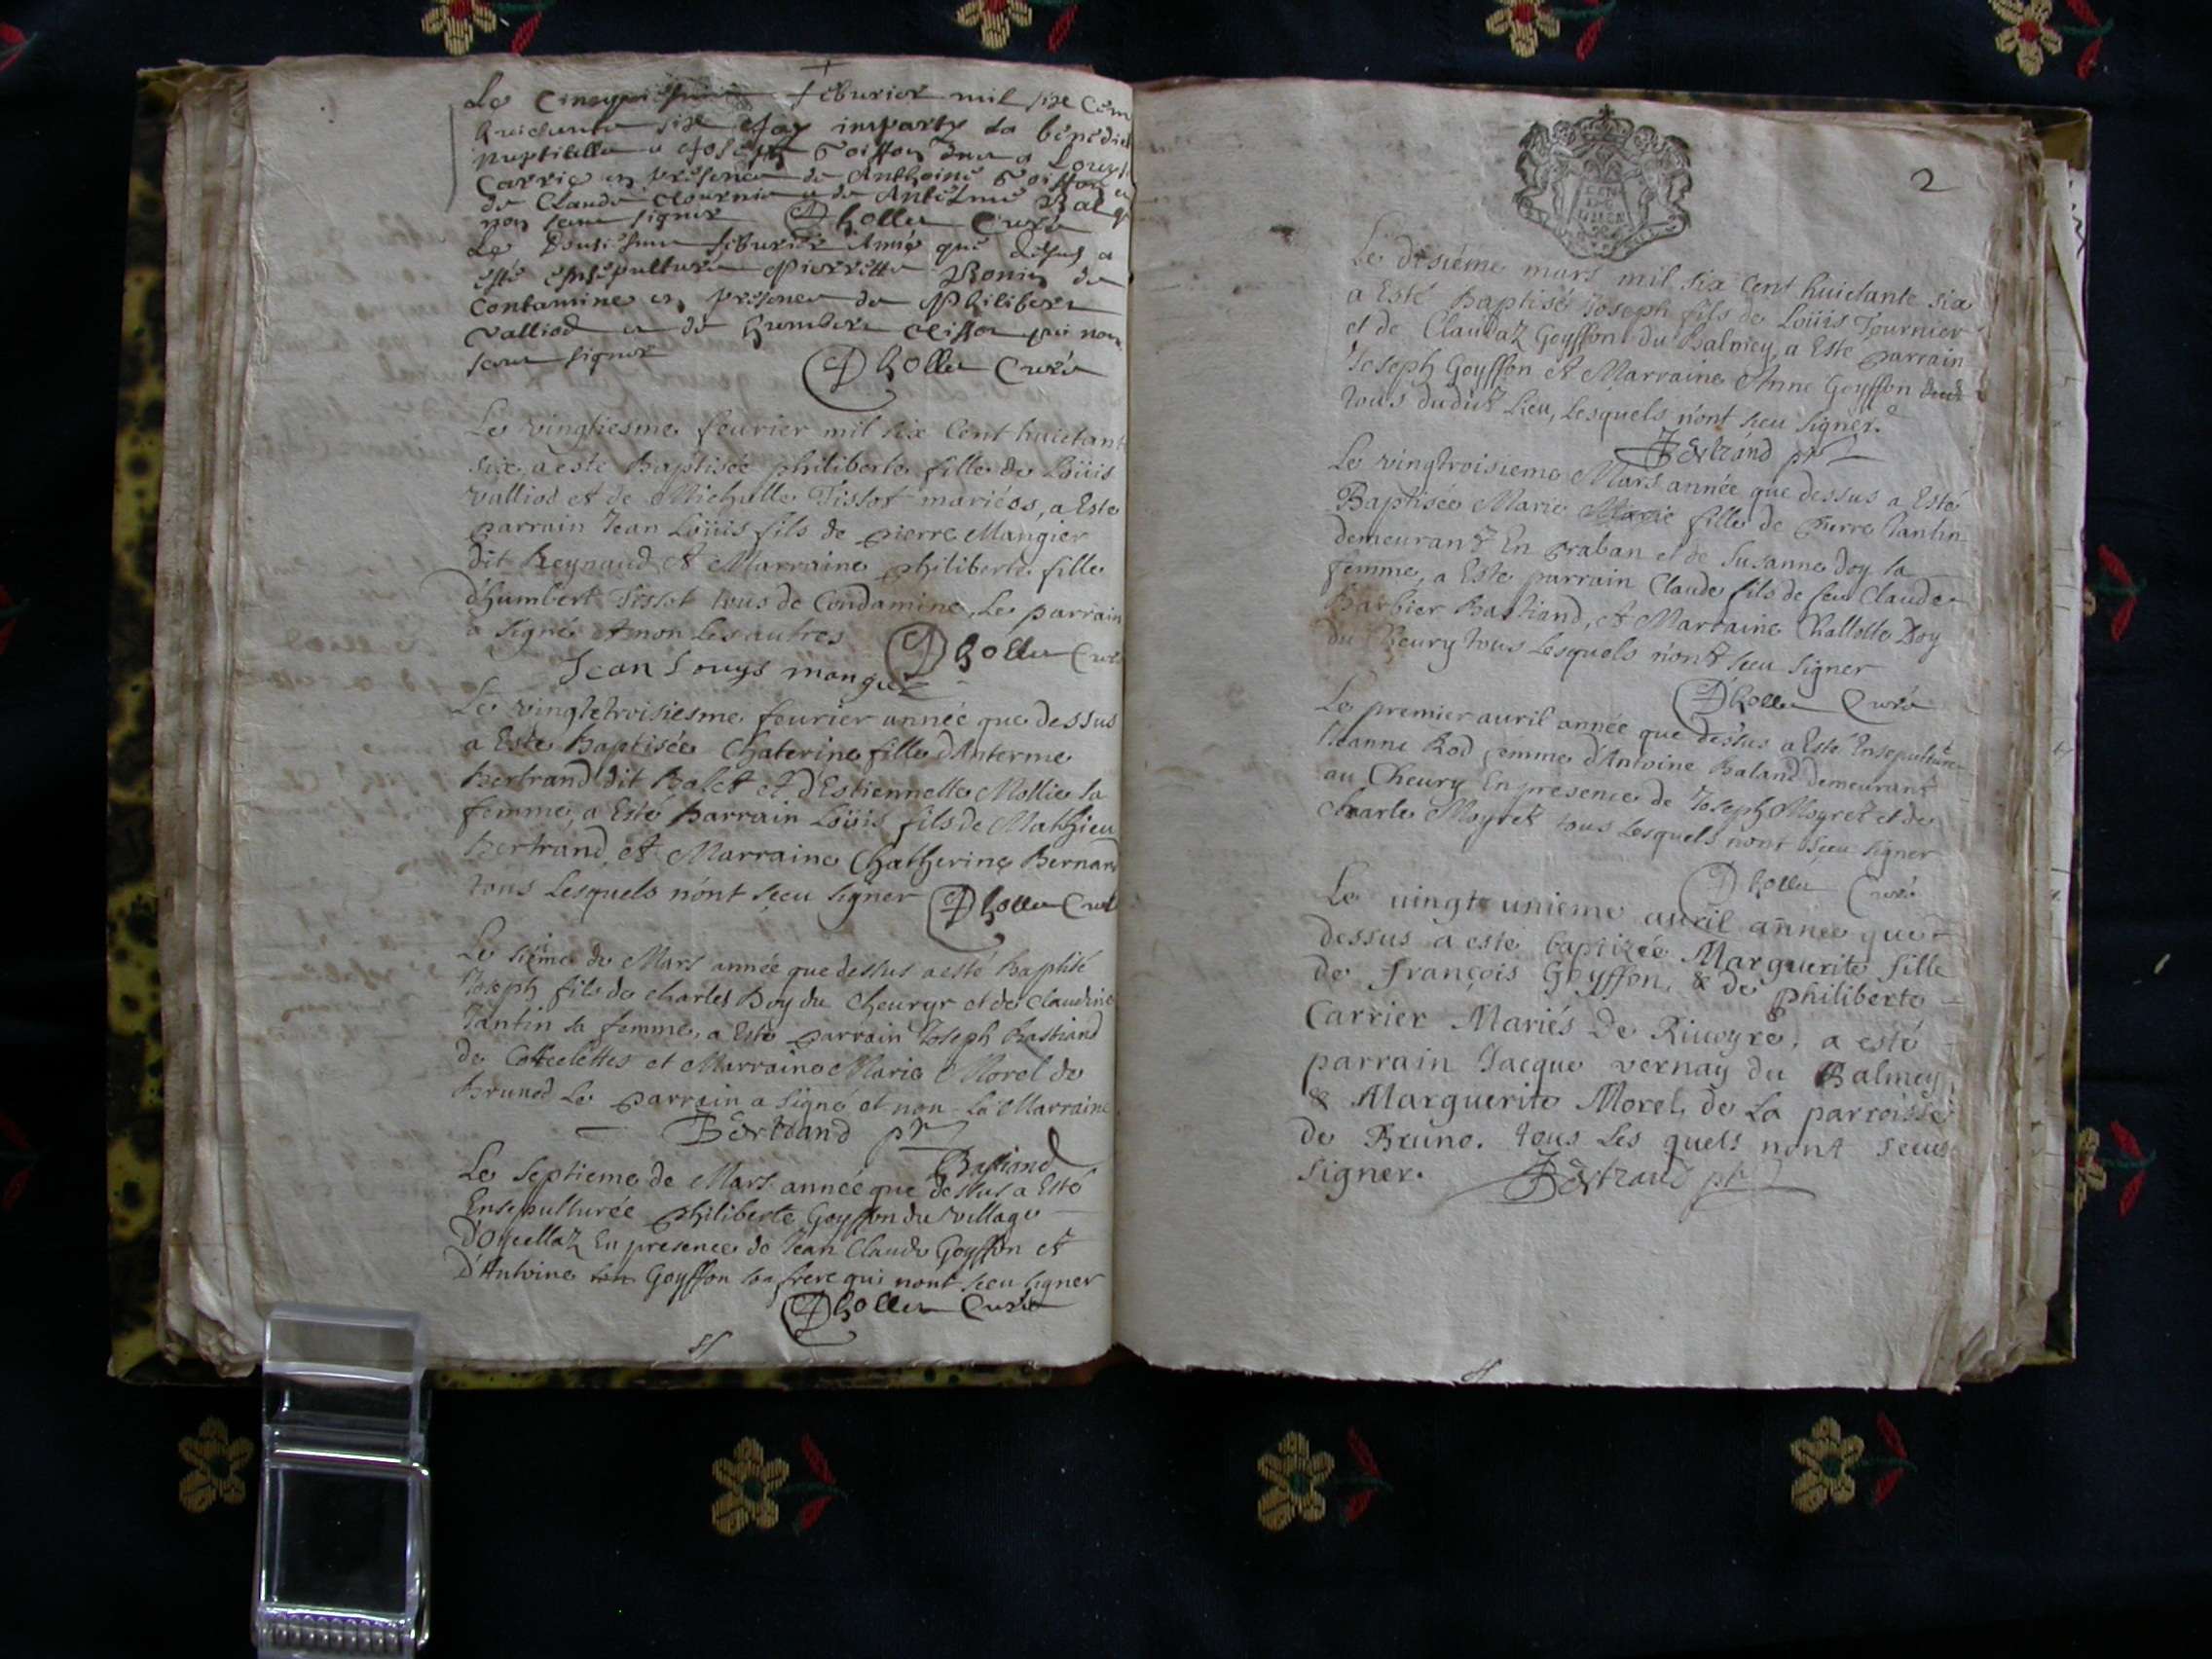 Le Cinquiesme feburier mil six Cent
huictante six Jay imparty la bénédic
nuptialle a Joseph Goiffon et a Louyse
Carrie en présence de Anthoine Goiffon et
de Claude Tournie et de Antelme
non sceu signer Dhollier Curé
Le feburier année que dessus a
esté ensépulturée Pierrette de
Contamine en présence de Philibert
valliod et de humbert qui nont
sceu signer
Dhollier Curé
Le vingtiesme feurier mil six Cent huictante
six, a esté Baptisée philiberte fille de Loüis
valliod et de Michelle Tissot mariéos, a Este
parrain Jean Loüis fils de pierre Mangier
dit Reynaud, et Marraine philiberte fille
d'humbert Tissot tous de Condamine, Le parrain
a signé et non Les autres
Dhollier Curé
Jean Louys mangier
Le vingtetroisiesme feurier année que dessus
a Esté Baptisée Chaterine fille d'Anterme
Bertrand dit Bolet et d'Estiennette Mollie sa
femme, a Esté parrain Loüis fils de Mathieu
Bertrand, et Marraine Chatherine Bernard
tous Lesquels n'ont sceu signer Dhollier Curé
Le siéme de Mars année que dessus a esté Baptisé
Joseph fils de charles Doy du Cheuryr et de Claudine
Tantin sa femme, a Esté parrain Joseph Bastiand
de Corcelettes et Marraine Marie Morel de
Brunod Le parrain a signé et non La Marraine
Bertrand ptre
Bastiand
Le septieme de Mars année que dessus a Esté
Ensepulturée philiberte Goyffon du village
D'Oysellaz En presence de Jean Claude Goyffon et
d'Antoine son Goyffon son frere qui nont sceu signer
Dhollier Curé
2
Le disiéme mars mil six Cent huictante six
a Esté Baptisé Joseph fils de Loüis Tournier
et de Claudaz Goyffon du Balmey, a Este parrain
Joseph Goyffon et Marraine Anne Goyffon
tous dudict Lieu, Lesquels n'ont sceu signer.
Bertrand ptre
Le vingtroisieme Mars année que dessus a Esté
Baptisée Marie Marie fille de pierre Tantin
demeurant En praban et de Susanne Doy sa
femme, a Este parrain Claude fils de feu Claude
Barbier Bastiand, et Marraine Challotte Doy
du Cheury tous Lesquels n'ont sceu signer
Dhollier Curé
Le premier auril année que dessus a Esté Ensepulturée
Jeanne Rod femme d'Antoine Baland demeurant
au Cheury En presence de Joseph Mogret et de
Charle Mogret tous Lesquels n'ont sceu signer
Dhollier Curé
Le uingt unieme auril annee que
dessus a esté baptizée Marguerite fille
de françois Goyffon, & de philiberte
Carrier Mariés De Riuoyre, a esté
parrain Jacque vernay du Balmey,
& Marguerite Morel, de La parroisse
de Bruno. tous Les quels nont sceus
signer. Bertrand ptre